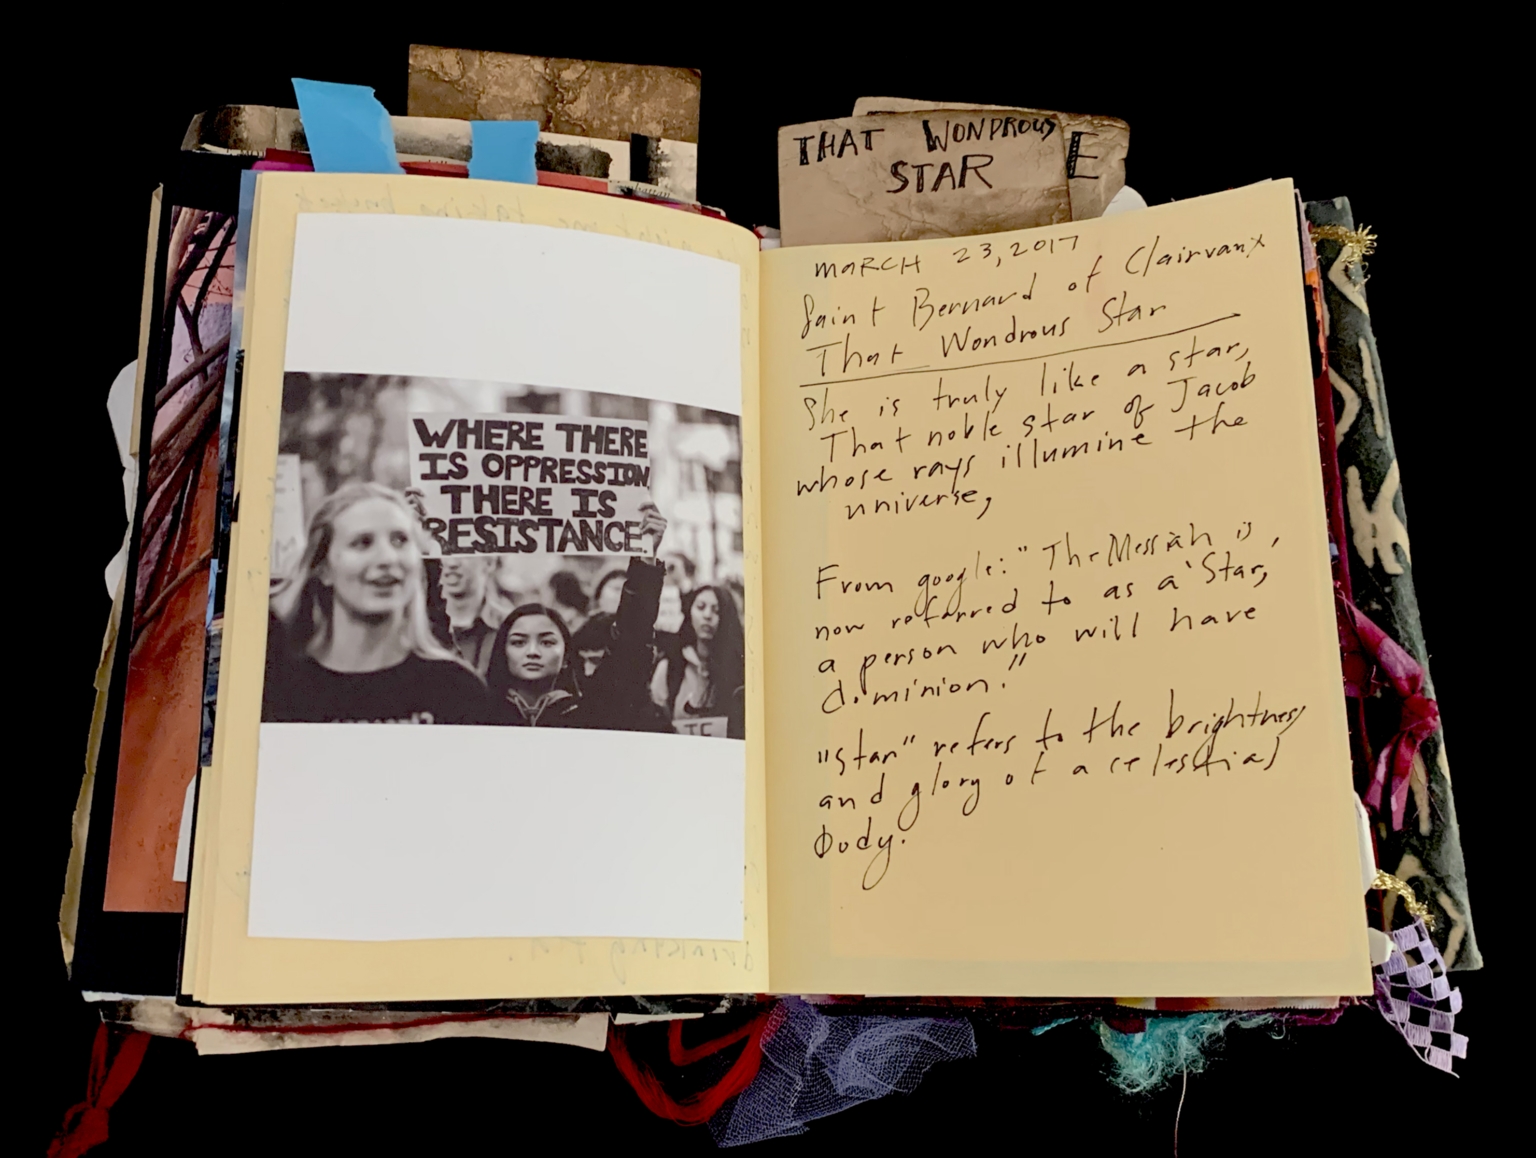 THAT WONDROUS
STAR
E
WHERE THERE
IS OPPRESSION
THERE IS
RESISTANCE.
MARCH 23, 2017
Saint Bernard of Clairvaux
That Wondrous Star
She is truly like a star,
That noble star of Jacob
whose rays illumine the
universe,
From google: "The Messiah is
now referred to as a 'Star,
a person who will have
dominion."
"Star" refers to the brightness
and glory of a celestial
body.
drinking